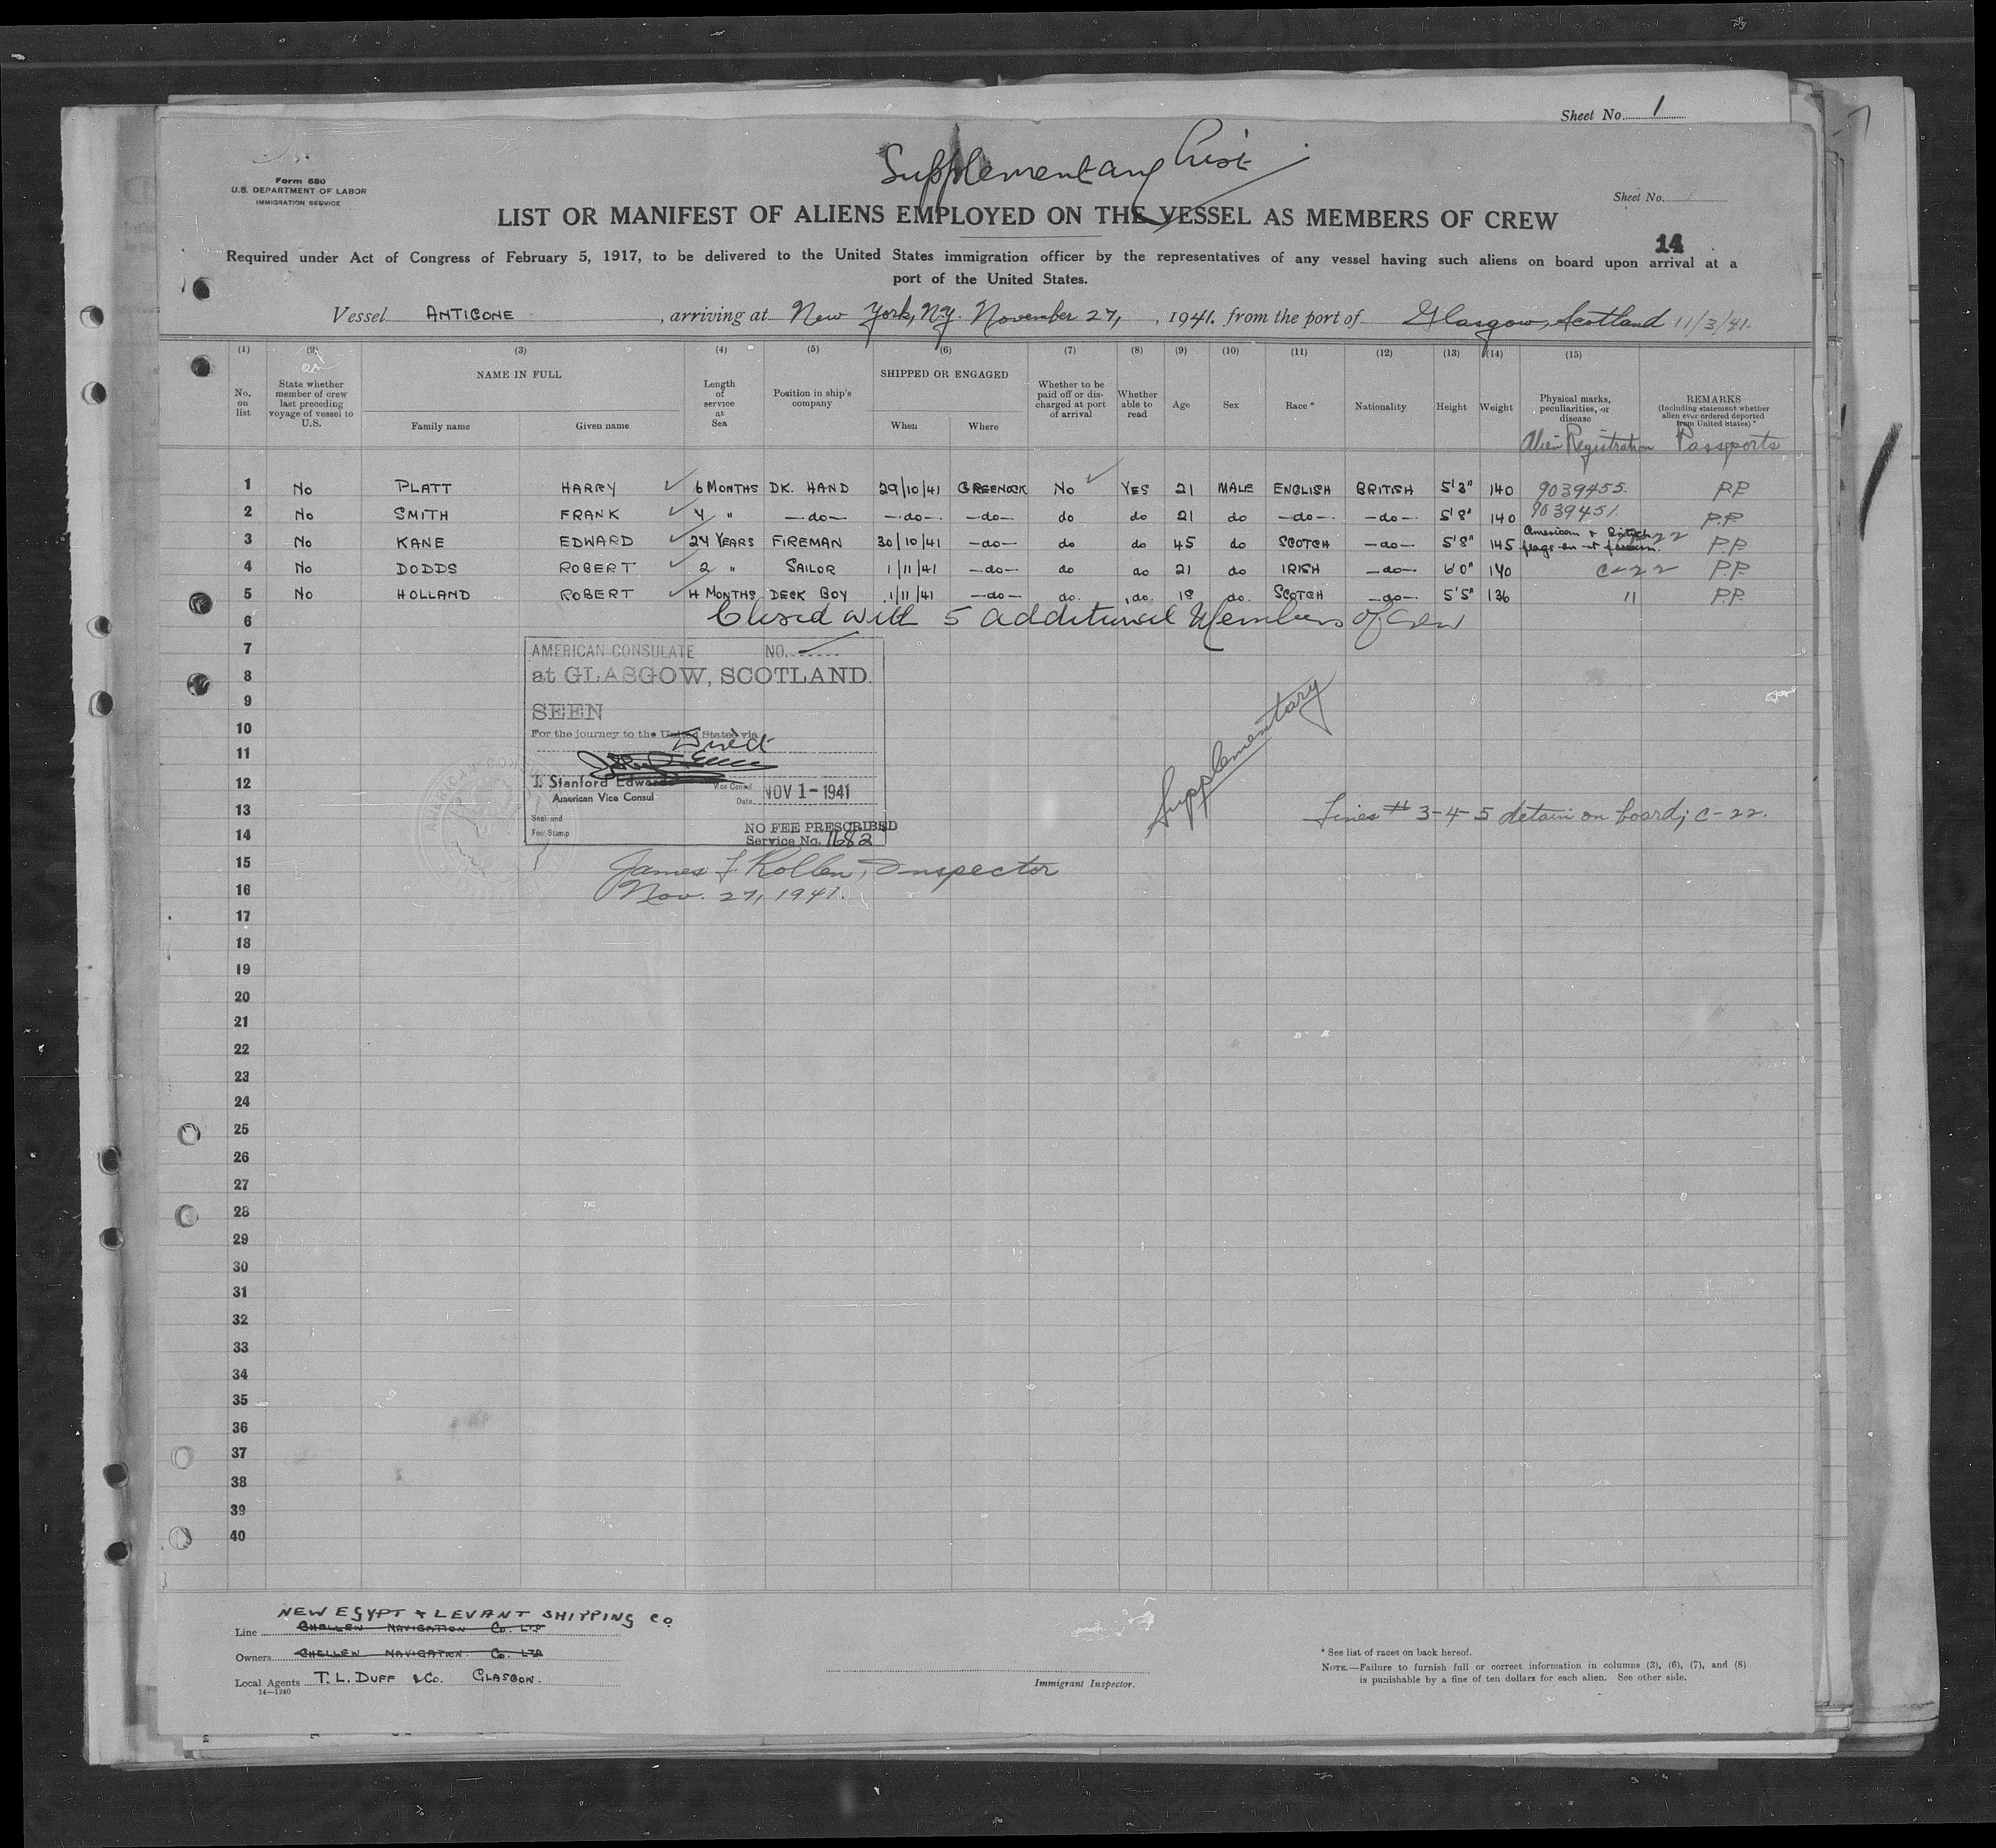 Sheet No. 1
Supplementary List
Form 680
U.S. DEPARTMENT OF LABOR
IMMIGRATION SERVICE
Sheet No.
LIST OR MANIFEST OF ALIENS EMPLOYED ON THE VESSEL AS MEMBERS OF CREW
14
Required under Act of Congress of February 5, 1917, to be delivered to the United States immigration officer by the representatives of any vessel having such aliens on board upon arrival at a
port of the United States.
Vessel ANTIGONE, arriving at New York, N.Y. November 27, 1941. from the port of Glasgow, Scotland 11/3/41.
(1) (2) (3) (4) (5) (6) (7) (8) (9) (10) (11) (12) (13) (14) (15)
No. on list
State whether member of crew last preceding voyage of vessel to U.S.
NAME IN FULL
Family name Given name
Length of service at Sea
Position in ship's company
SHIPPED OR ENGAGED
When Where
Whether to be paid off or discharged at port of arrival
Whether able to read
Age
Sex
Race *
Nationality
Height
Weight
Physical marks, peculiarities, or disease
Alien Registration
REMARKS
(Including statement whether alien ever ordered deported from United States) *
Passports
1 No PLATT HARRY 6 MONTHS DK. HAND 29/10/41 GREENOCK No YES 21 MALE ENGLISH BRITISH 5'3" 140 9039455. P.P.
2 No SMITH FRANK 4 " —do— —do— —do— do do 21 do —do— —do— 5'8" 140 9039451. P.P.
3 No KANE EDWARD 24 YEARS FIREMAN 30/10/41 —do— do do 45 do SCOTCH —do— 5'8" 145 American & British flags on forearm. P.P.
4 No DODDS ROBERT 2 " SAILOR 1/11/41 —do— do do 21 do IRISH —do— 6'0" 140 C-22 P.P.
5 No HOLLAND ROBERT 4 MONTHS DECK BOY 1/11/41 —do— do. do. 18 do. SCOTCH —do— 5'5" 136 " P.P.
6 Closed with 5 additional Members of Crew
7
8
9
10
11
12
13
14
15
16
17
18
19
20
21
22
23
24
25
26
27
28
29
30
31
32
33
34
35
36
37
38
39
40
AMERICAN CONSULATE NO.
at GLASGOW, SCOTLAND.
SEEN
For the journey to the United States via
Direct
J. Stanford Edwards
American Vice Consul
Vice Consul
Date NOV 1 - 1941
Seal and
Fee Stamp
NO FEE PRESCRIBED
Service No. 1682
Supplementary
Lines # 3-4-5 detain on board; C-22.
James F. Rollen, Inspector
Nov. 27, 1941.
NEW EGYPT & LEVANT SHIPPING CO
Line CHELLEW NAVIGATION Co. LTD
Owners CHELLEW NAVIGATION Co. LTD
Local Agents T. L. DUFF & Co. GLASGOW.
14—1240
Immigrant Inspector.
* See list of races on back hereof.
NOTE.—Failure to furnish full or correct information in columns (3), (6), (7), and (8)
is punishable by a fine of ten dollars for each alien. See other side.